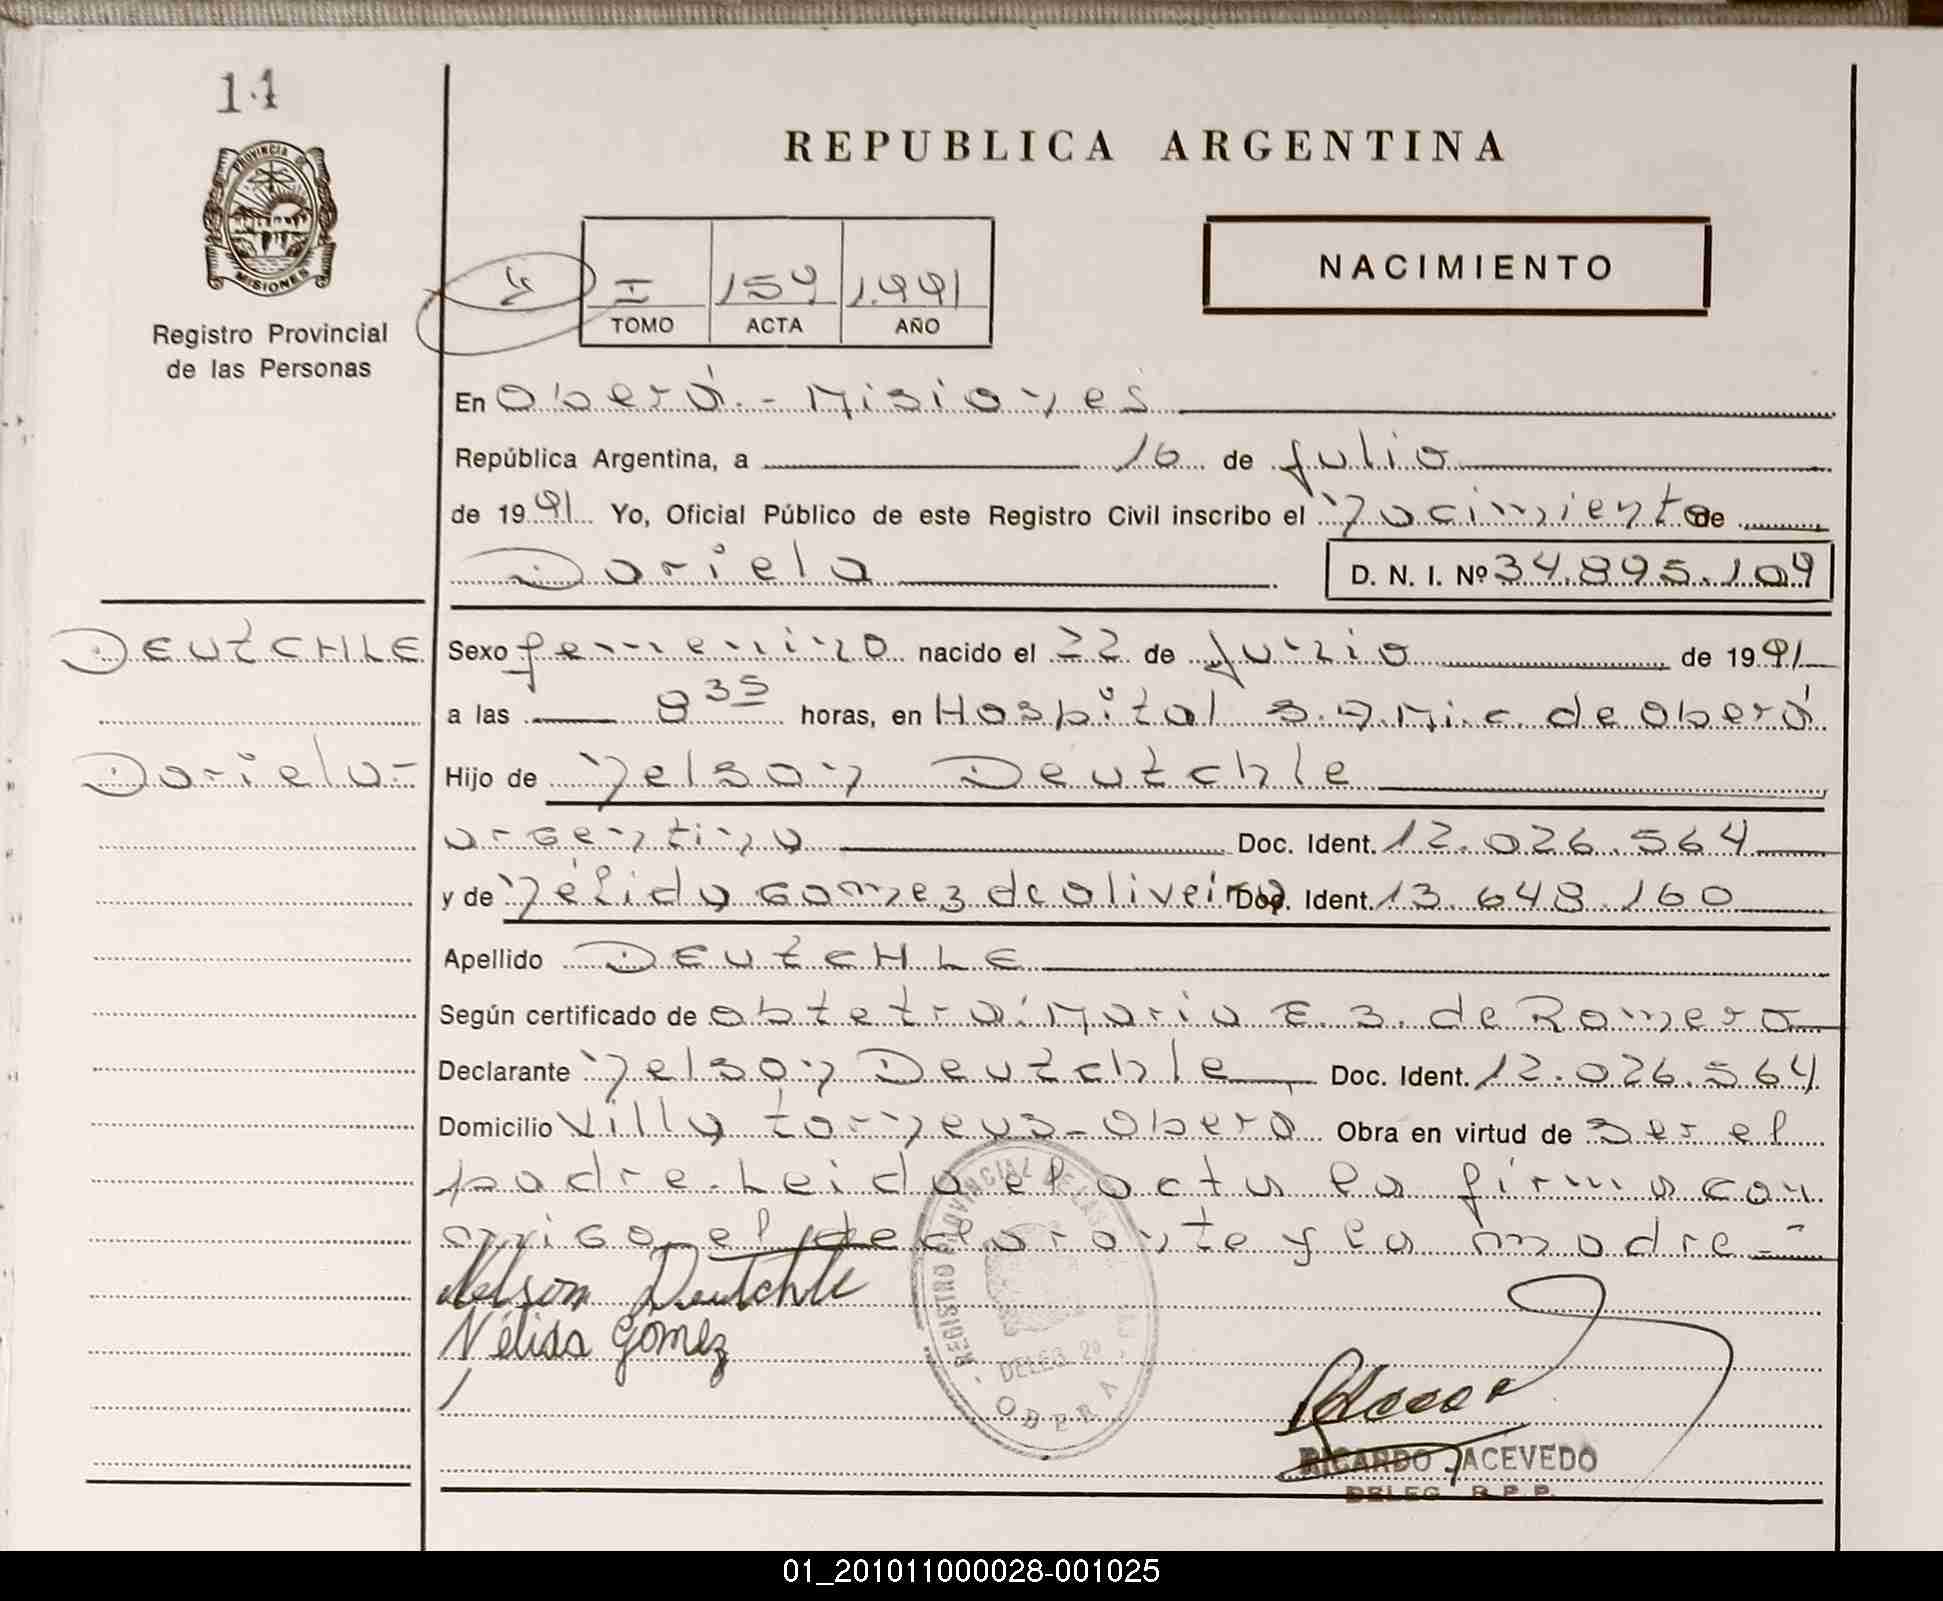 14
REPUBLICA ARGENTINA
PROVINCIA DE MISIONES
Registro Provincial
de las Personas
NACIMIENTO
I 159 1.991
TOMO ACTA AÑO
En Oberá - Misiones
República Argentina, a 16 de julio
de 1991 Yo, Oficial Público de este Registro Civil inscribo el Nacimiento de
Dariela D. N. I. Nº 34.895.109
DEUTCHLE
Dariela-
Sexo femenino nacido el 22 de junio de 1991
a las 8 35 horas, en Hospital S.A.Mi.c. de Oberá
Hijo de Nelson Deutchle
argentino Doc. Ident. 12.026.564
y de Nélida Gomez de oliveira Doc. Ident. 13.648.160
Apellido DEUTCHLE
Según certificado de obtetra: Maria E. S. de Romero
Declarante Nelson Deutchle Doc. Ident. 12.026.564
Domicilio Villa torneus - Oberá Obra en virtud de Ser el
padre. Leida el acta la firma con
migo el declarante y la madre.-
Nelson Deutchle
Nélida Gomez
REGISTRO PROVINCIAL DE LAS
DELEG. 2º
OBERA
RICARDO ACEVEDO
DELEG R.P.P.
01_201011000028-001025